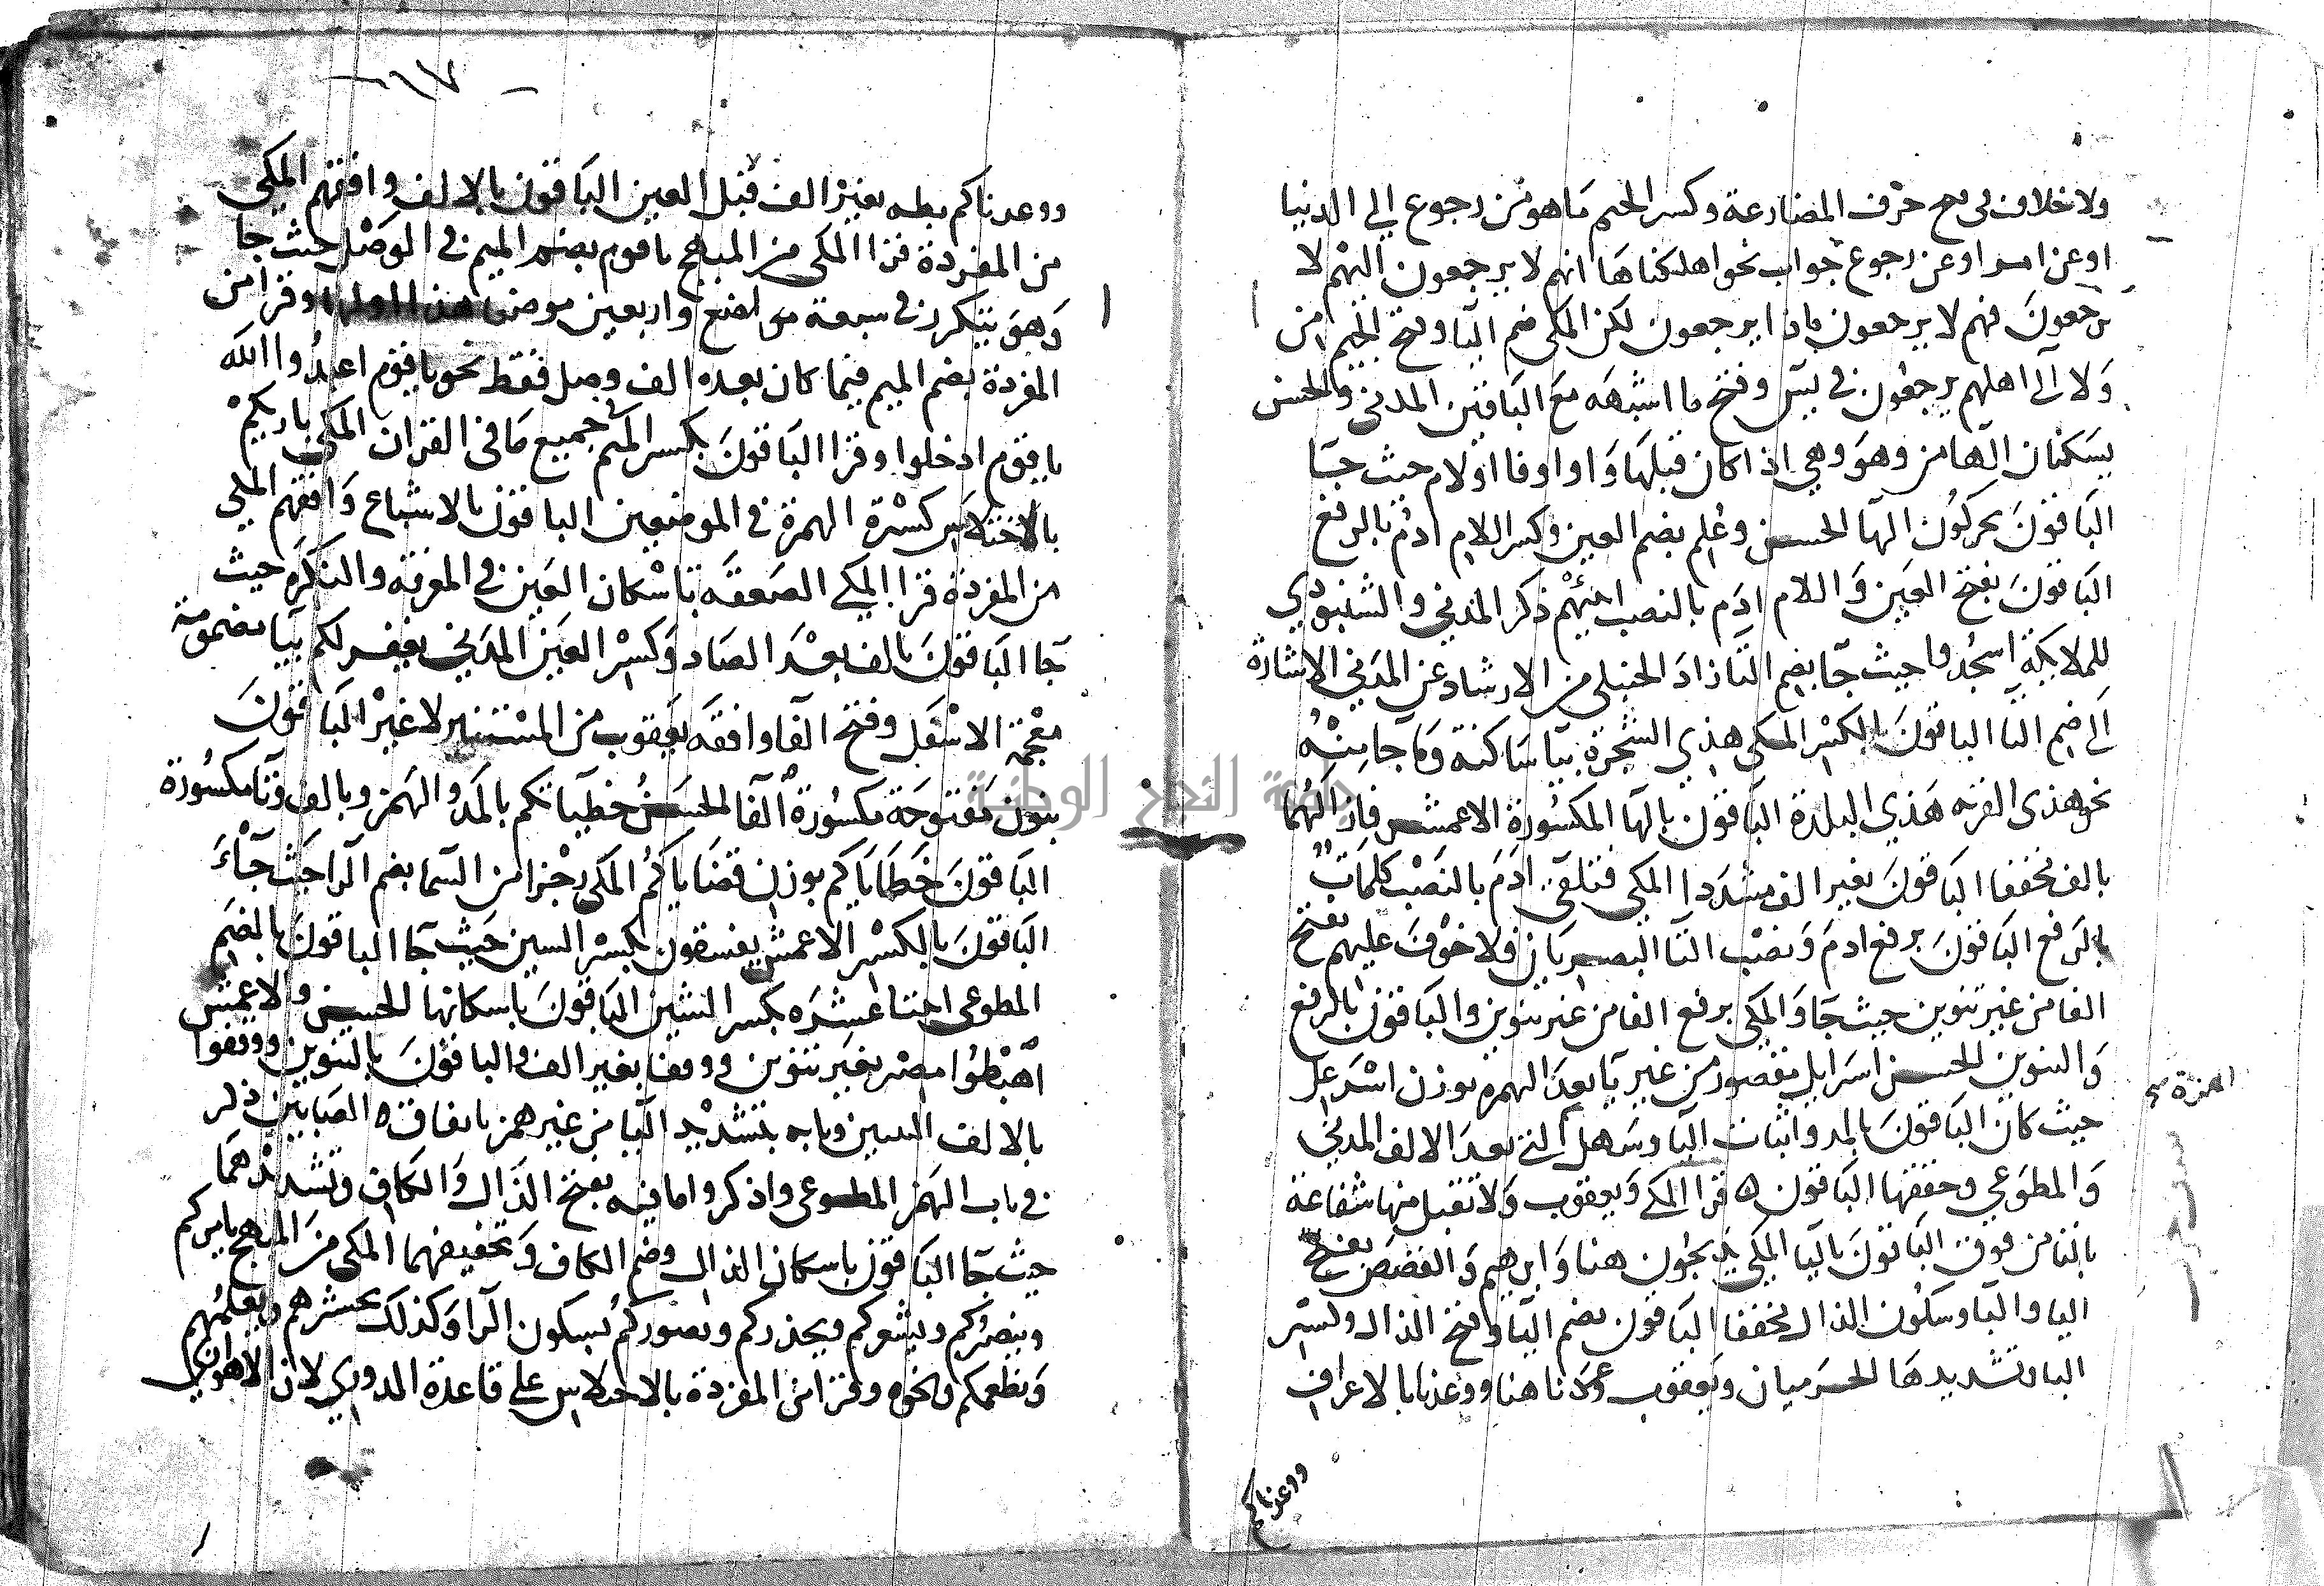 ولا خلاف في فتح حرف المضارعة وكسر الجيم ما هو من رجوع الى الدنيا
او عن امر او عن رجوع جواب نحو اهلكناها انهم لا يرجعون اليهم لا
يرجعون فهم لا يرجعون ماذا يرجعون لكن المكى ضم اليا وفتح الجيم من
ولا الى اهلهم يرجعون في يس وفتح ما اشبهه مع الباقين المدني والحسن
يسكنان الها من وهو وهي اذا كان قبلها واو او فا او لام حيث جا
الباقون يحركون الها الحسن وعلم بضم العين وكسر اللام ادم بالرفع
الباقون بفتح العين واللام ادم بالنصب انبئهم ذكر المدني والشنبوذي
للملائكة اسجدوا حيث جا بضم التا زاد الحنبلي من الارشاد عن المدني الاشارة
الى ضم التا الباقون بالكسر المكى هذي الشجرة بيا ساكنة وما جا منه
نحو هذى القرية هذي البلدة الباقون بالها المكسورة الاعمش فازالهما
بالف مخففا الباقون بغير الف مشددا المكي فتلقى ادم بالنصب كلمات
بالرفع الباقون برفع ادم ونصب التا البصريان فلا خوف عليهم بفتح
الفا من غير تنوين حيث جا والمكي برفع الفا من غير تنوين والباقون بالرفع
والتنوين الحسن اسرايل مقصور من غير يا بعد الهمزة بوزن اسرعل
حيث كان الباقون بالمد واثبات اليا وسهل التي بعد الالف المدني
الهمزة صح
والمطوعي وحققها الباقون ه قرا المكي ويعقوب ولا تقبل منها شفاعة
بالتا من فوق الباقون باليا المكي يذبحون هنا وابرهيم والقصص بفتح
اليا والبا وسكون الذال مخففا الباقون بضم اليا وفتح الذال وكسر
البا وتشديدها الحرميان ويعقوب وعدنا هنا ووعدنا بالاعراف
ووعدناكم
١٧
ووعدناكم بطه بغير الف قبل العين الباقون بالالف وافقهم المكي
من المفردة قرا المكى من المبهج يا قوم بضم الميم في الوصل حيث جا
وهو يتكرر في سبعة مواضع واربعين موضعا هذا اولها وقرا من
المفردة بضم الميم فيما كان بعده الف وصل فقط نحو يا قوم اعبدوا الله
يا قوم ادخلوا وقرا الباقون بكسر الميم في جميع ما في القران المكي باريكم
بالاختلاس كسرة الهمزة في الموضعين الباقون بالاشباع وافقهم المكي
من المفردة قرا المكي الصعقة باسكان العين في المعرفة والنكرة حيث
جا الباقون بالف بعد الصاد وكسر العين المدني يغفر لكم بيا مضمومة
معجمة الاسفل وفتح الفا وافقه يعقوب من المستنير لا غير الباقون
بنون مفتوحة مكسورة الفا الحسن خطيآتكم بالمد والهمز وبالف وتا مكسورة
الباقون خطاياكم بوزن قضاياكم المكي رجزا من السما بضم الرا حيث جاء
الباقون بالكسر الاعمش يفسقون بكسر السين حيث جا الباقون بالضم
المطوعي اثنتا عشرة بكسر الشين الباقون باسكانها الحسن والاعمش
اهبطوا مصر بغير تنوين ووقفا بغير الف والباقون بالتنوين ووقفوا
بالالف النبيين وبابه بتشديد اليا من غير همز باتفاق ه الصابين ذكر
في باب الهمز المطوعي واذكروا ما فيه بفتح الذال والكاف وتشديدهما
حيث جا الباقون باسكان الذال وضم الكاف وتخفيفهما المكى من المبهج يامركم
وينصركم ويشعركم ويحذركم ويصوركم بسكون الرا وكذلك يحشرهم ويعلمهم
ونطعمكم ونحوه وقرا من المفردة بالاختلاس على قاعدة الدوري لان الاهوازي